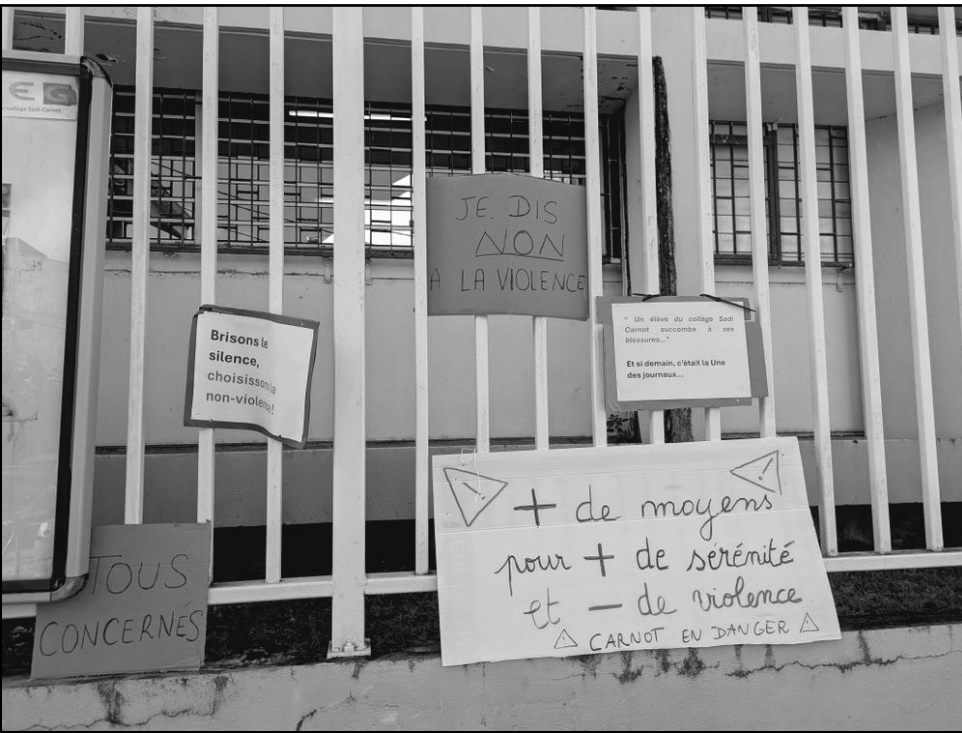 EG
collège Sadi-Carnot
JE DIS
NON
A LA VIOLENCE
Brisons le
silence,
choisissons la
non-violence!
" Un élève du collège Sadi
Carnot succombe à ses
blessures..."
Et si demain, c'était la Une
des journaux...
+ de moyens
pour + de sérénité
et - de violence
CARNOT EN DANGER
TOUS
CONCERNÉS